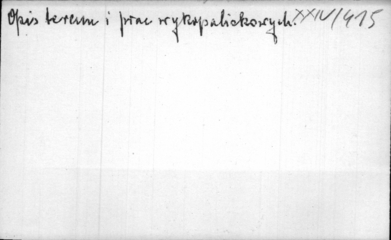 Opis terenu i prac wykopaliskowych. XXIV/415